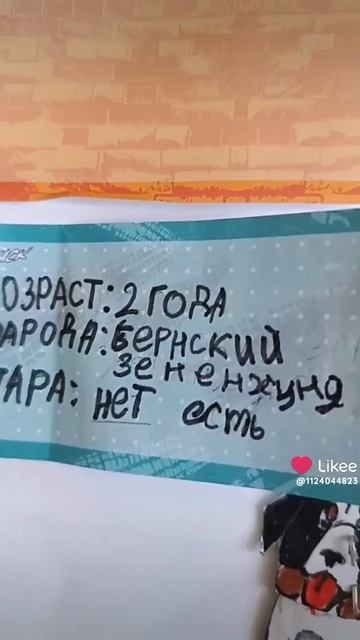 ОЗРАСТ: 2 ГОДА
АРОДА: БЕРНСКИЙ
зененхунд
ПАРА: НЕТ есть
Likee
@1124044823